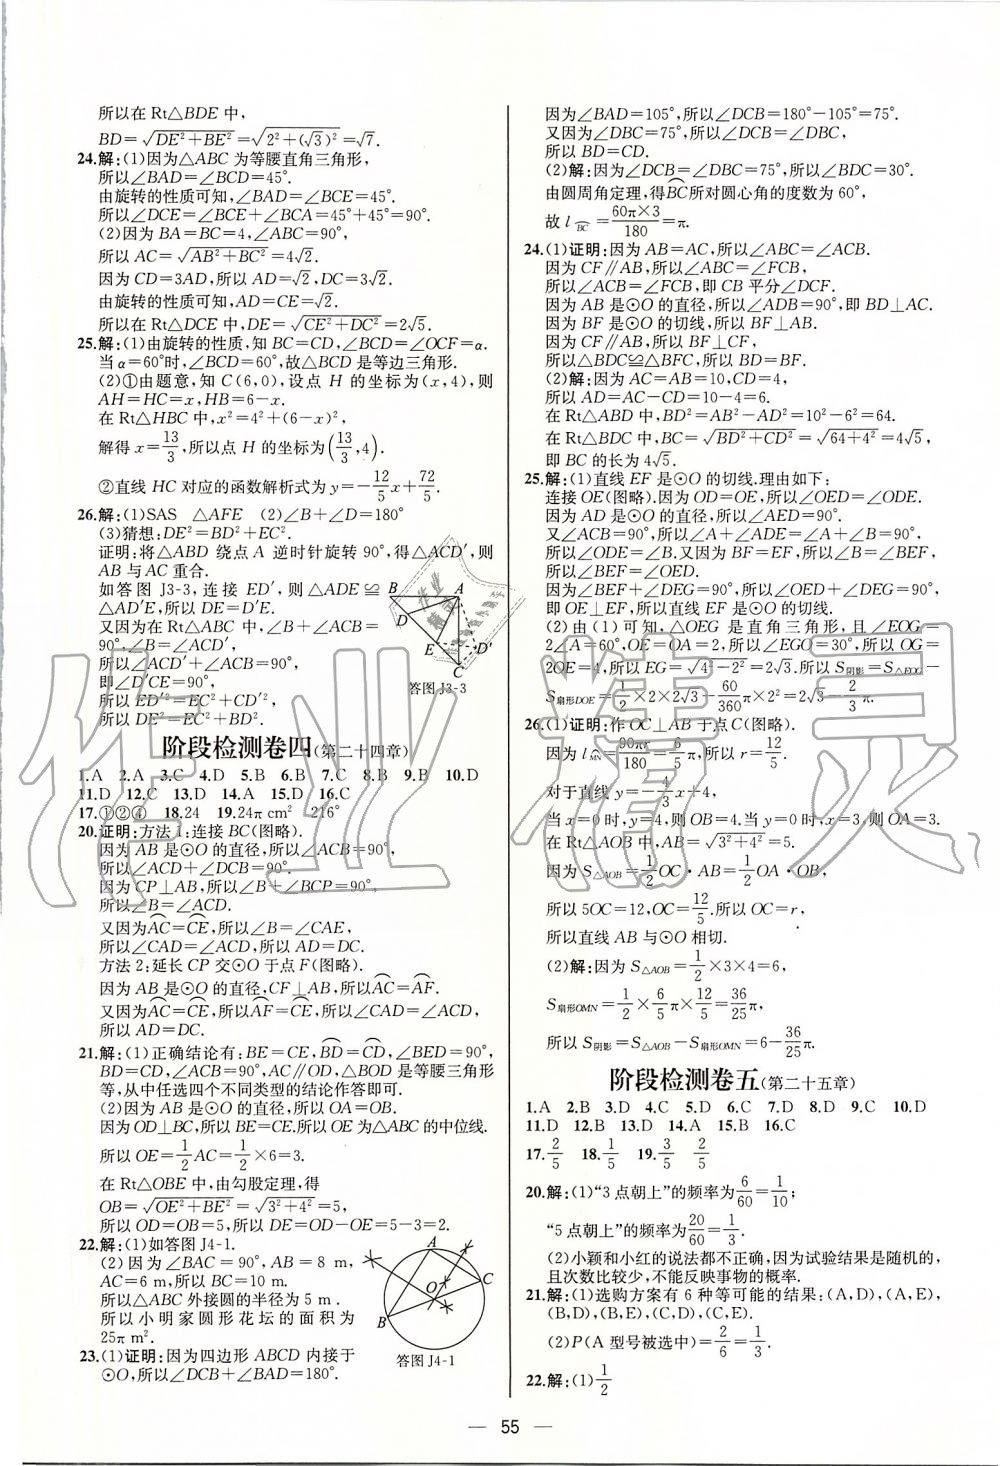 所以在 Rt△BDE 中,
BD=√(DE²+BE²)=√(2²+(√3)²)=√7.
24.解:(1)因为△ABC 为等腰直角三角形,
所以∠BAD=∠BCD=45°.
由旋转的性质可知,∠BAD=∠BCE=45°.
所以∠DCE=∠BCE+∠BCA=45°+45°=90°.
(2)因为 BA=BC=4,∠ABC=90°,
所以 AC=√(AB²+BC²)=4√2.
因为 CD=3AD,所以 AD=√2,DC=3√2.
由旋转的性质可知,AD=CE=√2.
所以在 Rt△DCE 中,DE=√(CE²+DC²)=2√5.
25.解:(1)由旋转的性质,知 BC=CD,∠BCD=∠OCF=α.
当 α=60°时,∠BCD=60°,故△BCD 是等边三角形.
(2)①由题意,知 C(6,0),设点 H 的坐标为(x,4),则
AH=HC=x,HB=6-x.
在 Rt△HBC 中,x²=4²+(6-x)²,
解得 x=13/3,所以点 H 的坐标为(13/3,4).
②直线 HC 对应的函数解析式为 y=-12/5x+72/5.
26.解:(1)SAS △AFE (2)∠B+∠D=180°
(3)猜想:DE²=BD²+EC².
证明:将△ABD 绕点 A 逆时针旋转 90°,得△ACD′,则
AB 与 AC 重合.
如答图 J3-3,连接 ED′,则△ADE≌
△AD′E,所以 DE=D′E.
又因为在 Rt△ABC 中,∠B+∠ACB=
90°,∠B=∠ACD′,
所以∠ACB+∠ACD′=90°,
即∠D′CE=90°.
所以 ED′²=EC²+CD′²,
所以 DE²=EC²+BD².
B A D E D′ C
答图 J3-3
阶段检测卷四(第二十四章)
1.A 2.A 3.C 4.D 5.B 6.B 7.C 8.B 9.B 10.D
11.D 12.C 13.D 14.A 15.D 16.C
17.①②④ 18.24 19.24π cm² 216°
20.证明:方法 1:连接 BC(图略).
因为 AB 是⊙O 的直径,所以∠ACB=90°,
所以∠ACD+∠DCB=90°.
因为 CP⊥AB,所以∠B+∠BCP=90°,
所以∠B=∠ACD.
又因为A͡C=C͡E,所以∠B=∠CAE,
所以∠CAD=∠ACD,所以 AD=DC.
方法 2:延长 CP 交⊙O 于点 F(图略).
因为 AB 是⊙O 的直径,CF⊥AB,所以A͡C=A͡F.
又因为A͡C=C͡E,所以A͡F=C͡E,所以∠CAD=∠ACD,
所以 AD=DC.
21.解:(1)正确结论有:BE=CE,B͡D=C͡D,∠BED=90°,
BD=CD,∠ACB=90°,AC∥OD,△BOD 是等腰三角形
等,从中任选四个不同类型的结论作答即可.
(2)因为 AB 是⊙O 的直径,所以 OA=OB.
因为 OD⊥BC,所以 BE=CE.所以 OE 为△ABC 的中位线.
所以 OE=1/2AC=1/2×6=3.
在 Rt△OBE 中,由勾股定理,得
OB=√(OE²+BE²)=√(3²+4²)=5,
所以 OD=OB=5,所以 DE=OD-OE=5-3=2.
22.解:(1)如答图 J4-1.
(2)因为∠BAC=90°,AB=8 m,
AC=6 m,所以 BC=10 m.
所以△ABC 外接圆的半径为 5 m.
所以小明家圆形花坛的面积为
25π m².
A C O B
答图 J4-1
23.(1)证明:因为四边形 ABCD 内接于
⊙O,所以∠DCB+∠BAD=180°.
因为∠BAD=105°,所以∠DCB=180°-105°=75°.
又因为∠DBC=75°,所以∠DCB=∠DBC,
所以 BD=CD.
(2)解:因为∠DCB=∠DBC=75°,所以∠BDC=30°.
由圆周角定理,得B͡C所对圆心角的度数为 60°,
故 l B͡C=60π×3/180=π.
24.(1)证明:因为 AB=AC,所以∠ABC=∠ACB.
因为 CF∥AB,所以∠ABC=∠FCB,
所以∠ACB=∠FCB,即 CB 平分∠DCF.
因为 AB 是⊙O 的直径,所以∠ADB=90°,即 BD⊥AC.
因为 BF 是⊙O 的切线,所以 BF⊥AB.
因为 CF∥AB,所以 BF⊥CF,
所以△BDC≌△BFC,所以 BD=BF.
(2)解:因为 AC=AB=10,CD=4,
所以 AD=AC-CD=10-4=6.
在 Rt△ABD 中,BD²=AB²-AD²=10²-6²=64.
在 Rt△BDC 中,BC=√(BD²+CD²)=√(64+4²)=4√5,
即 BC 的长为 4√5.
25.解:(1)直线 EF 是⊙O 的切线.理由如下:
连接 OE(图略).因为 OD=OE,所以∠OED=∠ODE.
因为 AD 是⊙O 的直径,所以∠AED=90°.
又∠ACB=90°,所以∠A+∠ADE=∠A+∠B=90°,
所以∠ODE=∠B.又因为 BF=EF,所以∠B=∠BEF,
所以∠BEF=∠OED.
因为∠BEF+∠DEG=90°,所以∠OED+∠DEG=90°,
即 OE⊥EF,所以直线 EF 是⊙O 的切线.
(2)由(1)可知,△OEG 是直角三角形,且∠EOG=
2∠A=60°,OE=OA=2,所以∠EGO=30°,所以 OG=
2OE=4,所以 EG=√(4²-2²)=2√3.所以 S阴影=S△EOG-
S扇形DOE=1/2×2×2√3-60/360π×2²=2√3-2/3π.
26.(1)证明:作 OC⊥AB 于点 C(图略).
因为 l M͡N=90πr/180=6/5π,所以 r=12/5.
对于直线 y=-4/3x+4,
当 x=0 时,y=4,则 OB=4.当 y=0 时,x=3,则 OA=3.
在 Rt△AOB 中,AB=√(3²+4²)=5.
因为 S△AOB=1/2OC·AB=1/2OA·OB,
所以 5OC=12,OC=12/5.所以 OC=r,
所以直线 AB 与⊙O 相切.
(2)解:因为 S△AOB=1/2×3×4=6,
S扇形OMN=1/2×6/5π×12/5=36/25π,
所以 S阴影=S△AOB-S扇形OMN=6-36/25π.
阶段检测卷五(第二十五章)
1.A 2.B 3.D 4.C 5.D 6.C 7.D 8.D 9.C 10.D
11.D 12.B 13.D 14.A 15.B 16.C
17.2/5 18.1/5 19.3/5 2/5
20.解:(1)“3 点朝上”的频率为6/60=1/10;
“5 点朝上”的频率为20/60=1/3.
(2)小颖和小红的说法都不正确,因为试验结果是随机的,
且次数比较少,不能反映事物的概率.
21.解:(1)选购方案有 6 种等可能的结果:(A,D),(A,E),
(B,D),(B,E),(C,D),(C,E).
(2)P(A 型号被选中)=2/6=1/3.
22.解:(1)1/2
— 55 —
作业精灵